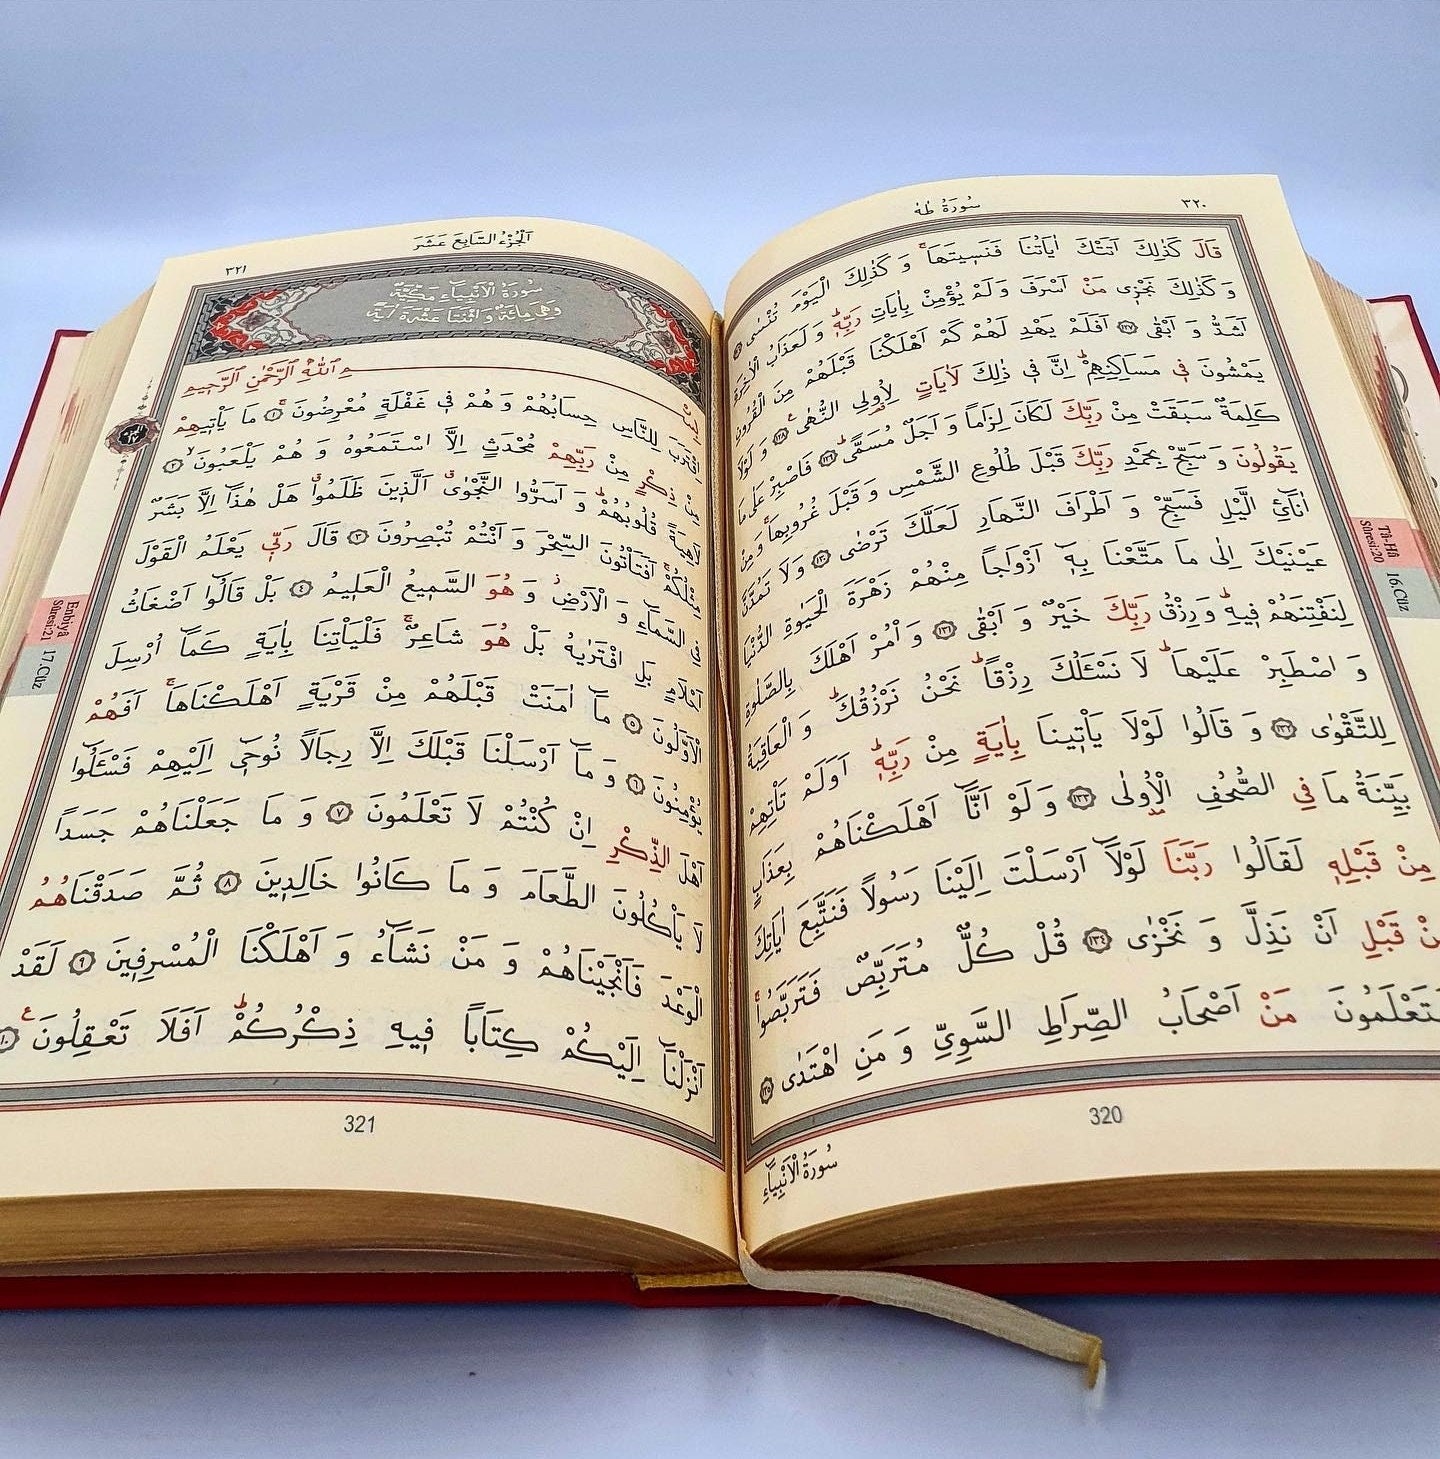 سُورَةُ طٰهٰ
٣٢٠
قَالَ كَذٰلِكَ اَتَتْكَ اٰيَاتُنَا فَنَسٖيتَهَاۚ وَ كَذٰلِكَ الْيَوْمَ تُنْسٰى
وَ كَذٰلِكَ نَجْزٖى مَنْ اَسْرَفَ وَ لَمْ يُؤْمِنْ بِاٰيَاتِ رَبِّهٖؕ وَ لَعَذَابُ الْاٰخِرَةِ
اَشَدُّ وَ اَبْقٰى ١٢٧ اَفَلَمْ يَهْدِ لَهُمْ كَمْ اَهْلَكْنَا قَبْلَهُمْ مِنَ الْقُرُونِ
يَمْشُونَ فٖى مَسَاكِنِهِمْؕ اِنَّ فٖى ذٰلِكَ لَاٰيَاتٍ لِاُولِى النُّهٰىࣖ ١٢٨ وَ لَوْلَا
كَلِمَةٌ سَبَقَتْ مِنْ رَبِّكَ لَكَانَ لِزَاماً وَ اَجَلٌ مُسَمًّىؕ ١٢٩ فَاصْبِرْ عَلٰى مَا
يَقُولُونَ وَ سَبِّحْ بِحَمْدِ رَبِّكَ قَبْلَ طُلُوعِ الشَّمْسِ وَ قَبْلَ غُرُوبِهَاۚ وَ مِنْ
اٰنَآئِ الَّيْلِ فَسَبِّحْ وَ اَطْرَافَ النَّهَارِ لَعَلَّكَ تَرْضٰى ١٣٠ وَ لَا تَمُدَّنَّ
عَيْنَيْكَ اِلٰى مَا مَتَّعْنَا بِهٖٓ اَزْوَاجاً مِنْهُمْ زَهْرَةَ الْحَيٰوةِ الدُّنْيَا
لِنَفْتِنَهُمْ فٖيهِؕ وَ رِزْقُ رَبِّكَ خَيْرٌ وَ اَبْقٰى ١٣١ وَ أْمُرْ اَهْلَكَ بِالصَّلٰوةِ
وَ اصْطَبِرْ عَلَيْهَاؕ لَا نَسْـَٔلُكَ رِزْقاًؕ نَحْنُ نَرْزُقُكَؕ وَ الْعَاقِبَةُ
لِلتَّقْوٰى ١٣٢ وَ قَالُوا لَوْلَا يَأْتٖينَا بِاٰيَةٍ مِنْ رَبِّهٖؕ اَوَلَمْ تَأْتِهِمْ
بَيِّنَةُ مَا فِى الصُّحُفِ الْاُولٰى ١٣٣ وَ لَوْ اَنَّٓا اَهْلَكْنَاهُمْ بِعَذَابٍ
مِنْ قَبْلِهٖ لَقَالُوا رَبَّنَا لَوْلَٓا اَرْسَلْتَ اِلَيْنَا رَسُولاً فَنَتَّبِعَ اٰيَاتِكَ
مِنْ قَبْلِ اَنْ نَذِلَّ وَ نَخْزٰى ١٣٤ قُلْ كُلٌّ مُتَرَبِّصٌ فَتَرَبَّصُواۚ
فَسَتَعْلَمُونَ مَنْ اَصْحَابُ الصِّرَاطِ السَّوِىِّ وَ مَنِ اهْتَدٰى ١٣٥
320
سُورَةُ الْاَنْبِيَٓاءِ
Tâ-Hâ
Sûresi:20
16.Cüz
اَلْجُزْءُ السَّابِعَ عَشَرَ
٣٢١
سُورَةُ الْاَنْبِيَٓاءِ مَكِّيَّةٌ
وَهِىَ مِائَةٌ وَ اثْنَتَا عَشْرَةَ اٰيَةً
بِسْمِ اللّٰهِ الرَّحْمٰنِ الرَّحٖيمِ
اِقْتَرَبَ لِلنَّاسِ حِسَابُهُمْ وَ هُمْ فٖى غَفْلَةٍ مُعْرِضُونَۚ ١ مَا يَأْتٖيهِمْ
مِنْ ذِكْرٍ مِنْ رَبِّهِمْ مُحْدَثٍ اِلَّا اسْتَمَعُوهُ وَ هُمْ يَلْعَبُونَۙ ٢
لَاهِيَةً قُلُوبُهُمْؕ وَ اَسَرُّوا النَّجْوٰىࣗ الَّذٖينَ ظَلَمُواࣗ هَلْ هٰذَٓا اِلَّا بَشَرٌ
مِثْلُكُمْۚ اَفَتَأْتُونَ السِّحْرَ وَ اَنْتُمْ تُبْصِرُونَ ٣ قَالَ رَبّٖى يَعْلَمُ الْقَوْلَ
فِى السَّمَٓاءِ وَ الْاَرْضِؗ وَ هُوَ السَّمٖيعُ الْعَلٖيمُ ٤ بَلْ قَالُٓوا اَضْغَاثُ
اَحْلَامٍ بَلِ افْتَرٰيهُ بَلْ هُوَ شَاعِرٌۚ فَلْيَأْتِنَا بِاٰيَةٍ كَمَٓا اُرْسِلَ
الْاَوَّلُونَ ٥ مَٓا اٰمَنَتْ قَبْلَهُمْ مِنْ قَرْيَةٍ اَهْلَكْنَاهَاۚ اَفَهُمْ
يُؤْمِنُونَ ٦ وَ مَٓا اَرْسَلْنَا قَبْلَكَ اِلَّا رِجَالاً نُوحٖٓى اِلَيْهِمْ فَسْـَٔلُٓوا
اَهْلَ الذِّكْرِ اِنْ كُنْتُمْ لَا تَعْلَمُونَ ٧ وَ مَا جَعَلْنَاهُمْ جَسَداً
لَا يَأْكُلُونَ الطَّعَامَ وَ مَا كَانُوا خَالِدٖينَ ٨ ثُمَّ صَدَقْنَاهُمُ
الْوَعْدَ فَاَنْجَيْنَاهُمْ وَ مَنْ نَشَٓاءُ وَ اَهْلَكْنَا الْمُسْرِفٖينَ ٩ لَقَدْ
اَنْزَلْنَٓا اِلَيْكُمْ كِتَاباً فٖيهِ ذِكْرُكُمْؕ اَفَلَا تَعْقِلُونَࣖ ١٠
321
Enbiyâ
Sûresi:21
17.Cüz